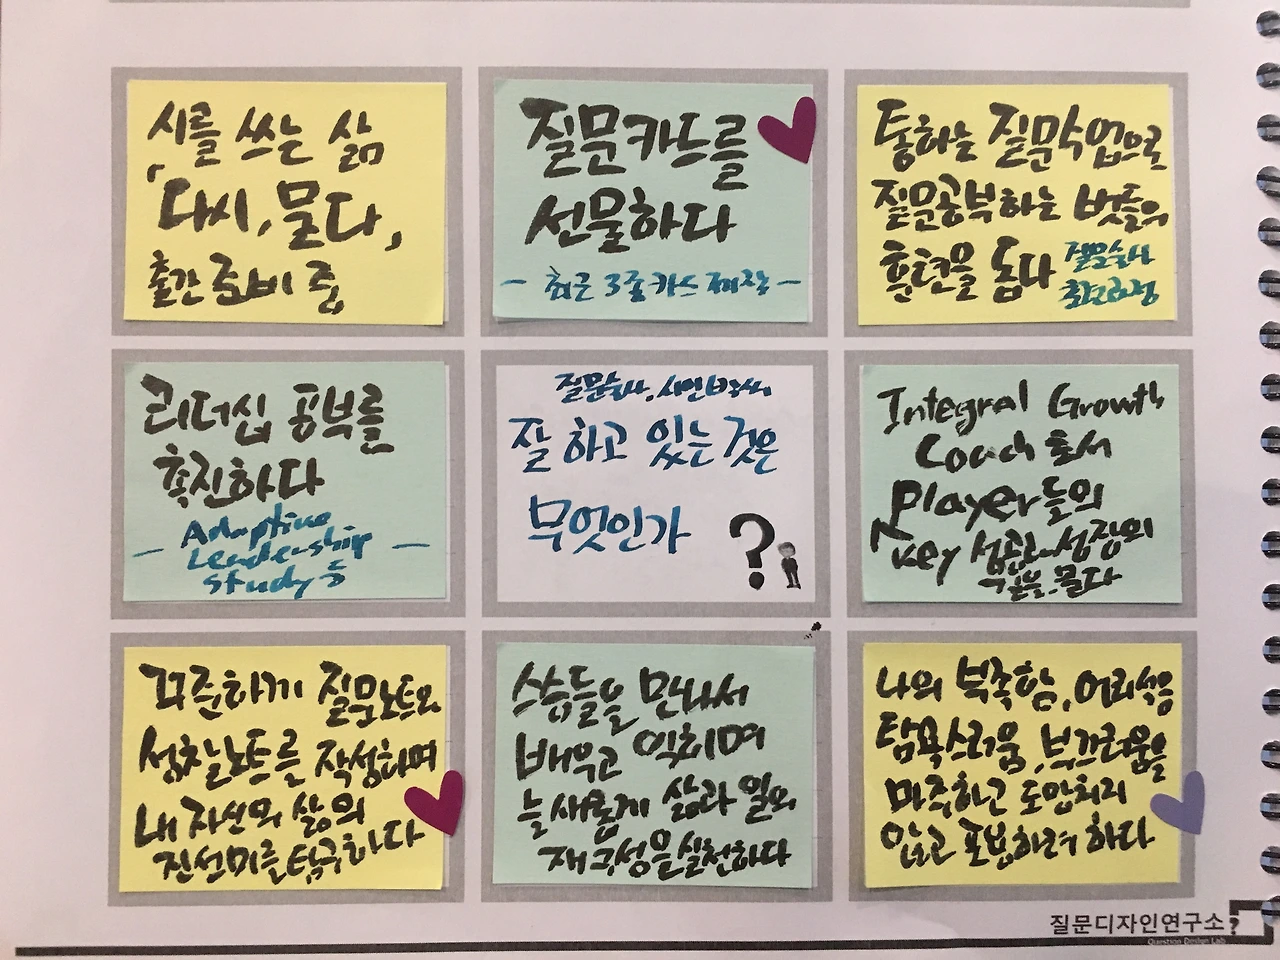 시를 쓰는 삶
「다시, 묻다」
출간 준비 중
질문카드를
선물하다
- 최근 3종 카드 제작 -
통하는 질문수업으로
질문공부하는 벗들의
훈련을 돕다 질문술사
리더십 공부를
촉진하다
Adaptive
- Leadership -
Study 등
질문술사, 시인박씨
잘 하고 있는 것은
무엇인가
?
Integral Growth
Coach로서
Player들의
Key 습관, 성장의
물다
꾸준하게 질문노트와
성찰노트를 작성하며
내 자신의 삶의
진선미를 탐구하다
스승들을 만나서
배우고 익히며
늘 새롭게 삶과 일의
재구성을 실천하다
나의 부족함, 어리석음
탐욕스러움, 부끄러움을
마주하고 도망치지
않고 포용하려 하다
질문디자인연구소?
Question Design Lab.